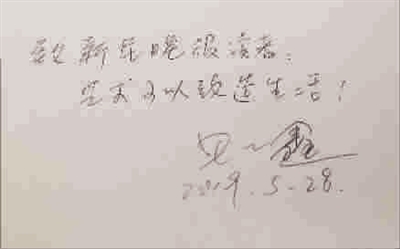 致新民晚报读者:
艺术可以改造生活!
2019.5-28.